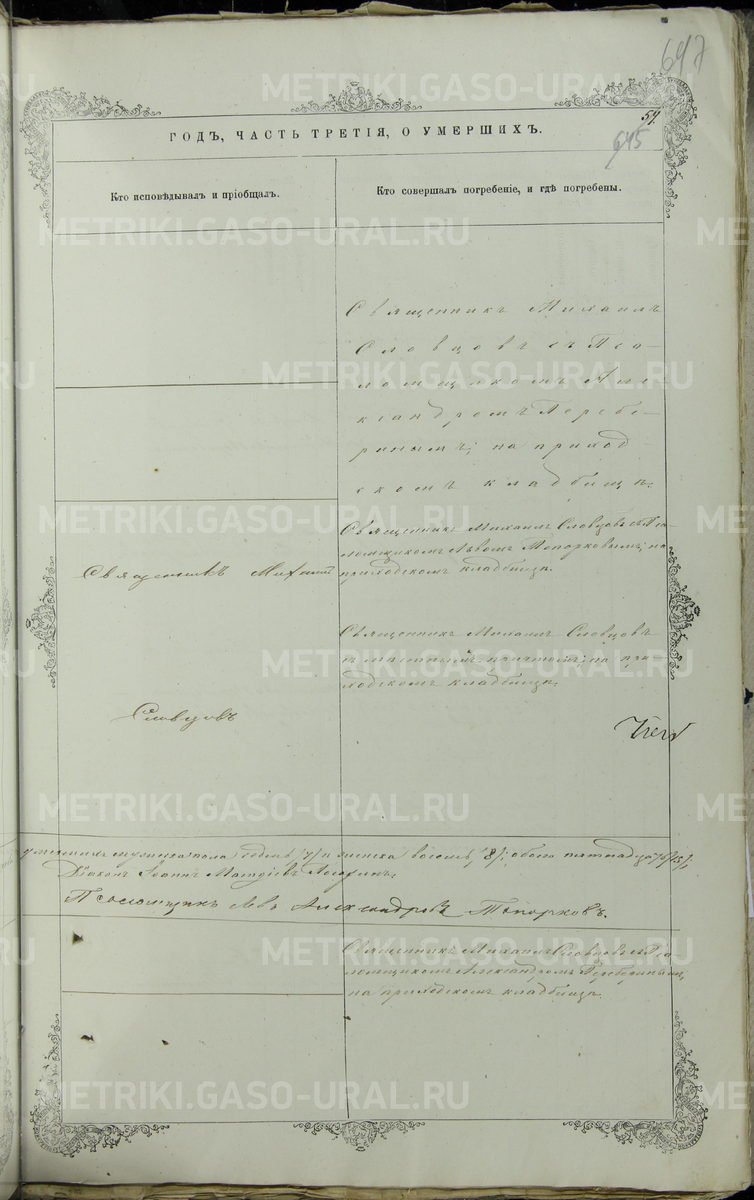 647
54.
645
ГОДЪ, ЧАСТЬ ТРЕТІЯ, О УМЕРШИХЪ.
Кто исповѣдывалъ и пріобщалъ.
Кто совершалъ погребеніе, и гдѣ погребены.
Священникъ Михаилъ
Словцовъ съ Пса-
ломщикомъ Але-
ксандромъ
на приход-
скомъ кладбищѣ.
Священникъ Михаилъ Словцовъ съ Пса-
ломщикомъ Львомъ Топорковымъ; на
приходскомъ кладбищѣ.
Священникъ Михаилъ
Священникъ Михаилъ Словцовъ
съ причтомъ; на при-
ходскомъ кладбищѣ.
Словцовъ
умершихъ мужеска пола семь /7/ и женска восемь /8/; обоего пятнадцать /15/.
Діаконъ Іоаннъ
Псаломщикъ Левъ Александровъ Топорковъ.
Священникъ Михаилъ Словцовъ съ Пса-
ломщикомъ Александромъ
на приходскомъ кладбищѣ.
METRIKI.GASO-URAL.RU